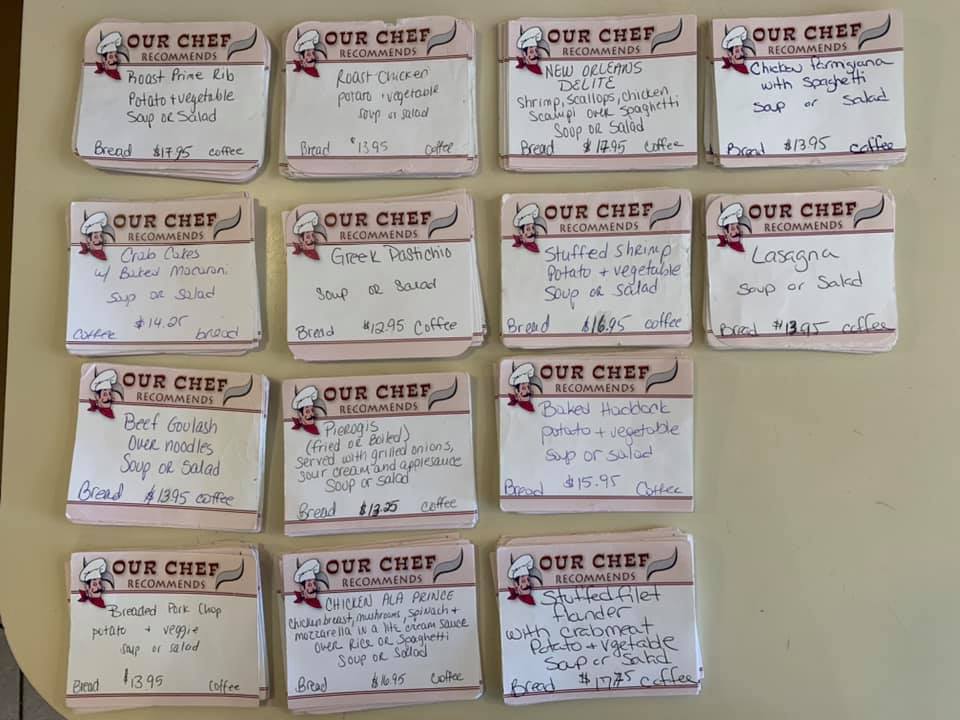 OUR CHEF
RECOMMENDS
Roast Prime Rib
Potato + vegetable
Soup or Salad
Bread $17.95 coffee
OUR CHEF
RECOMMENDS
Roast Chicken
potato + vegetable
soup or salad
Bread $13.95 coffee
OUR CHEF
RECOMMENDS
NEW ORLEANS
DELITE
Shrimp, scallops, chicken
Scampi over spaghetti
Soup or Salad
Bread $17.95 coffee
OUR CHEF
RECOMMENDS
Chicken Parmigyana
with Spaghetti
Soup or Salad
Bread $13.95 coffee
OUR CHEF
RECOMMENDS
Crab Cakes
w/ Baked Macaroni
Soup or Salad
$14.25
Coffee bread
OUR CHEF
RECOMMENDS
Greek Pastichio
Soup or Salad
Bread $12.95 Coffee
OUR CHEF
RECOMMENDS
Stuffed Shrimp
Potato + vegetable
Soup or Salad
Bread $16.95 coffee
OUR CHEF
RECOMMENDS
Lasagna
Soup or Salad
Bread $13.95 coffee
OUR CHEF
RECOMMENDS
Beef Goulash
Over noodles
Soup or Salad
Bread $13.95 coffee
OUR CHEF
RECOMMENDS
Pierogis
(fried or Boiled)
served with grilled onions,
sour cream and applesauce
Soup or salad
Bread $13.25 coffee
OUR CHEF
RECOMMENDS
Baked Haddock
potato + vegetable
Soup or salad
Bread $15.95 Coffee
OUR CHEF
RECOMMENDS
Breaded Pork Chop
potato + veggie
soup or salad
Bread $13.95 coffee
OUR CHEF
RECOMMENDS
CHICKEN ALA PRINCE
Chicken breast, mushrooms, spinach +
mozzarella in a lite cream sauce
over Rice or Spaghetti
Soup or Salad
Bread $16.95 coffee
OUR CHEF
RECOMMENDS
Stuffed filet
flander
with crabmeat
Potato + vgetable
Soup or Salad
Bread coffee